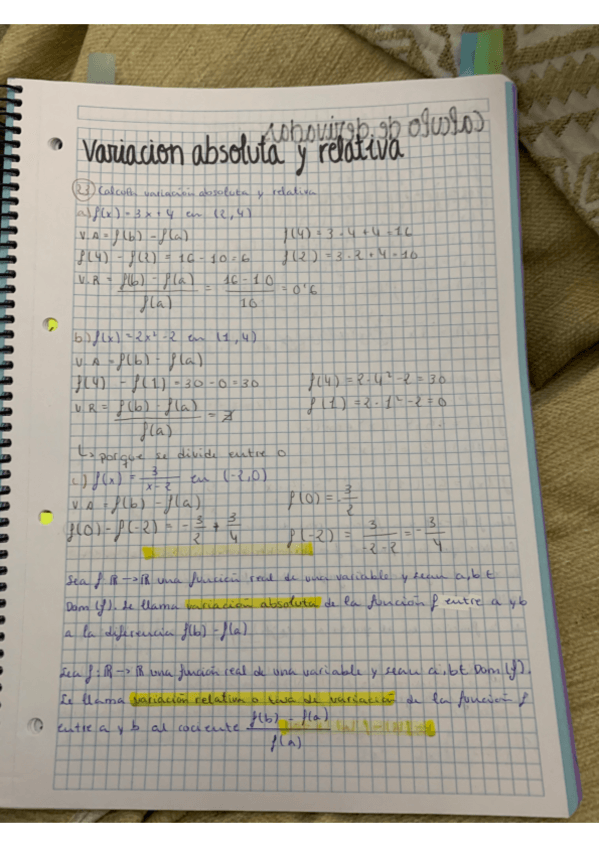 Variacion absoluta y relativa
23 Calcula variación absoluta y relativa
a) f(x) = 3x + 4 en (2,4)
V.A = f(b) - f(a) f(4) = 3·4+4=16
f(4) - f(2) = 16 - 10 = 6 f(2) = 3·2+4=10
V.R = f(b) - f(a) / f(a) = 16 - 10 / 10 = 0'6
b) f(x) = 2x² - 2 en (1,4)
V.A = f(b) - f(a)
f(4) - f(1) = 30 - 0 = 30 f(4) = 2·4² - 2 = 30
V.R = f(b) - f(a) / f(a) = ∄ f(1) = 2·1² - 2 = 0
↳ porque se divide entre 0
c) f(x) = 3 / x-2 en (-2,0)
V.A = f(b) - f(a) f(0) = - 3/2
f(0) - f(-2) = - 3/2 + 3/4 f(-2) = 3 / -2-2 = - 3/4
Sea f R → R una función real de una variable y sean a, b ∈
Dom (f). Se llama variación absoluta de la función f entre a y b
a la diferencia f(b) - f(a)
Sea f: R → R una función real de una variable y sean a, b ∈ Dom (f).
Se llama variación relativa o tasa de variación de la función f
entre a y b al cociente f(b) - f(a) / f(a)